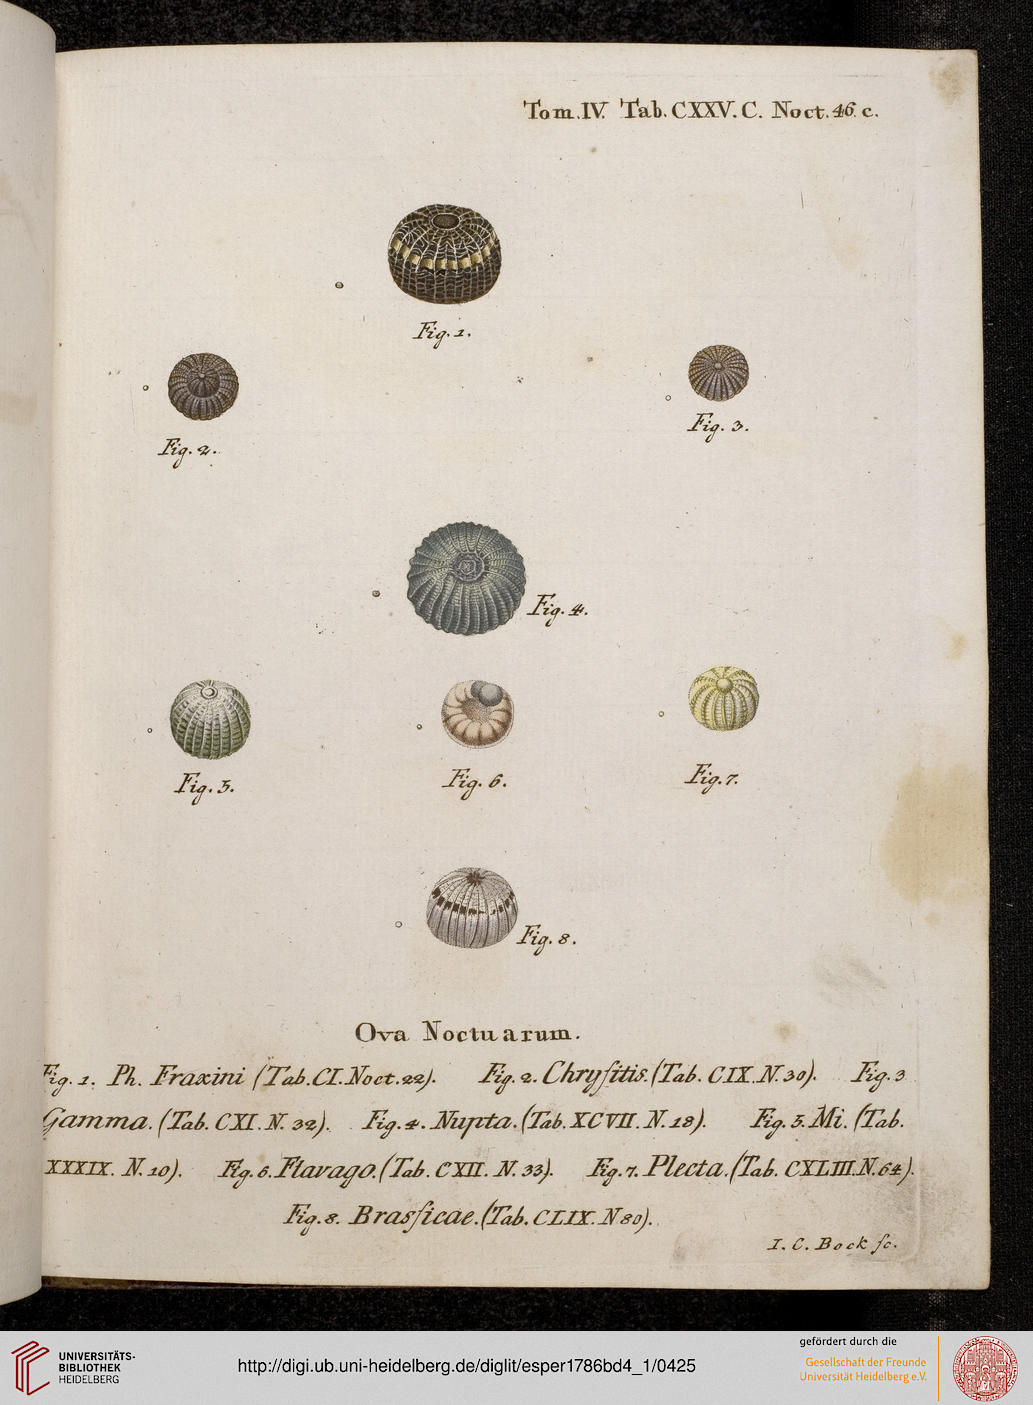 Tom.IV. Tab.CXXV.C. Noct.46.c.
Fig. 1.
Fig. 2.
Fig. 3.
Fig. 4.
Fig. 5.
Fig. 6.
Fig. 7.
Fig. 8.
Ova Noctuarum.
Fig. 1. Ph. Fraxini (Tab. CI. Noct. 22). Fig. 2. Chryſitis. (Tab. CIX. N. 30). Fig. 3
Gamma. (Tab. CXI. N. 32). Fig. 4. Nupta. (Tab. XCVII. N. 18). Fig. 5. Mi. (Tab.
XXXIX. N. 10). Fig. 6. Flavago. (Tab. CXII. N. 33). Fig. 7. Plecta. (Tab. CXLIII. N. 64).
Fig. 8. Brasſicae. (Tab. CLIX. N 80).
I. C. Bock ſc.
UNIVERSITÄTS-
BIBLIOTHEK
HEIDELBERG
http://digi.ub.uni-heidelberg.de/diglit/esper1786bd4_1/0425
gefördert durch die
Gesellschaft der Freunde
Universität Heidelberg e.V.